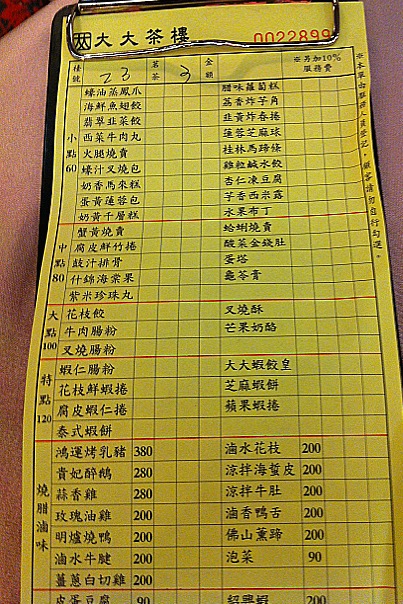 大大茶樓
0022899
檯號 23 茗茶 3 金額 ※另加10%服務費
※本單由服務人員登記，顧客請勿自行勾選。
小點60
蠔油蒸鳳爪 腊味蘿蔔糕
海鮮魚翅餃 荔香炸芋角
翡翠韭菜餃 韭黃炸春捲
西菜牛肉丸 蓮蓉芝麻球
火腿燒賣 桂林馬蹄條
蠔汁叉燒包 雞粒鹹水餃
奶香馬來糕 杏仁凍豆腐
蛋黃蓮蓉包 芋香西米露
奶黃千層糕 水果布丁
中點80
蟹黃燒賣 蛤蜊燒賣
腐皮鮮竹捲 酸菜金錢肚
豉汁排骨 蛋塔
什錦海棠果 龜苓膏
紫米珍珠丸
大點100
花枝餃 叉燒酥
牛肉腸粉 芒果奶酪
叉燒腸粉
特點120
蝦仁腸粉 大大蝦餃皇
花枝鮮蝦捲 芝麻蝦餅
腐皮蝦仁捲 蘋果蝦捲
泰式蝦餅
燒腊滷味
鴻運烤乳豬 380 滷水花枝 200
貴妃醉鵝 280 涼拌海蜇皮 200
蒜香雞 280 涼拌牛肚 200
玫瑰油雞 200 滷香鴨舌 200
明爐燒鴨 200 佛山薰蹄 200
滷水牛腱 200 泡菜 90
薑蔥白切雞 200
皮蛋豆腐 90 紹興蝦 200